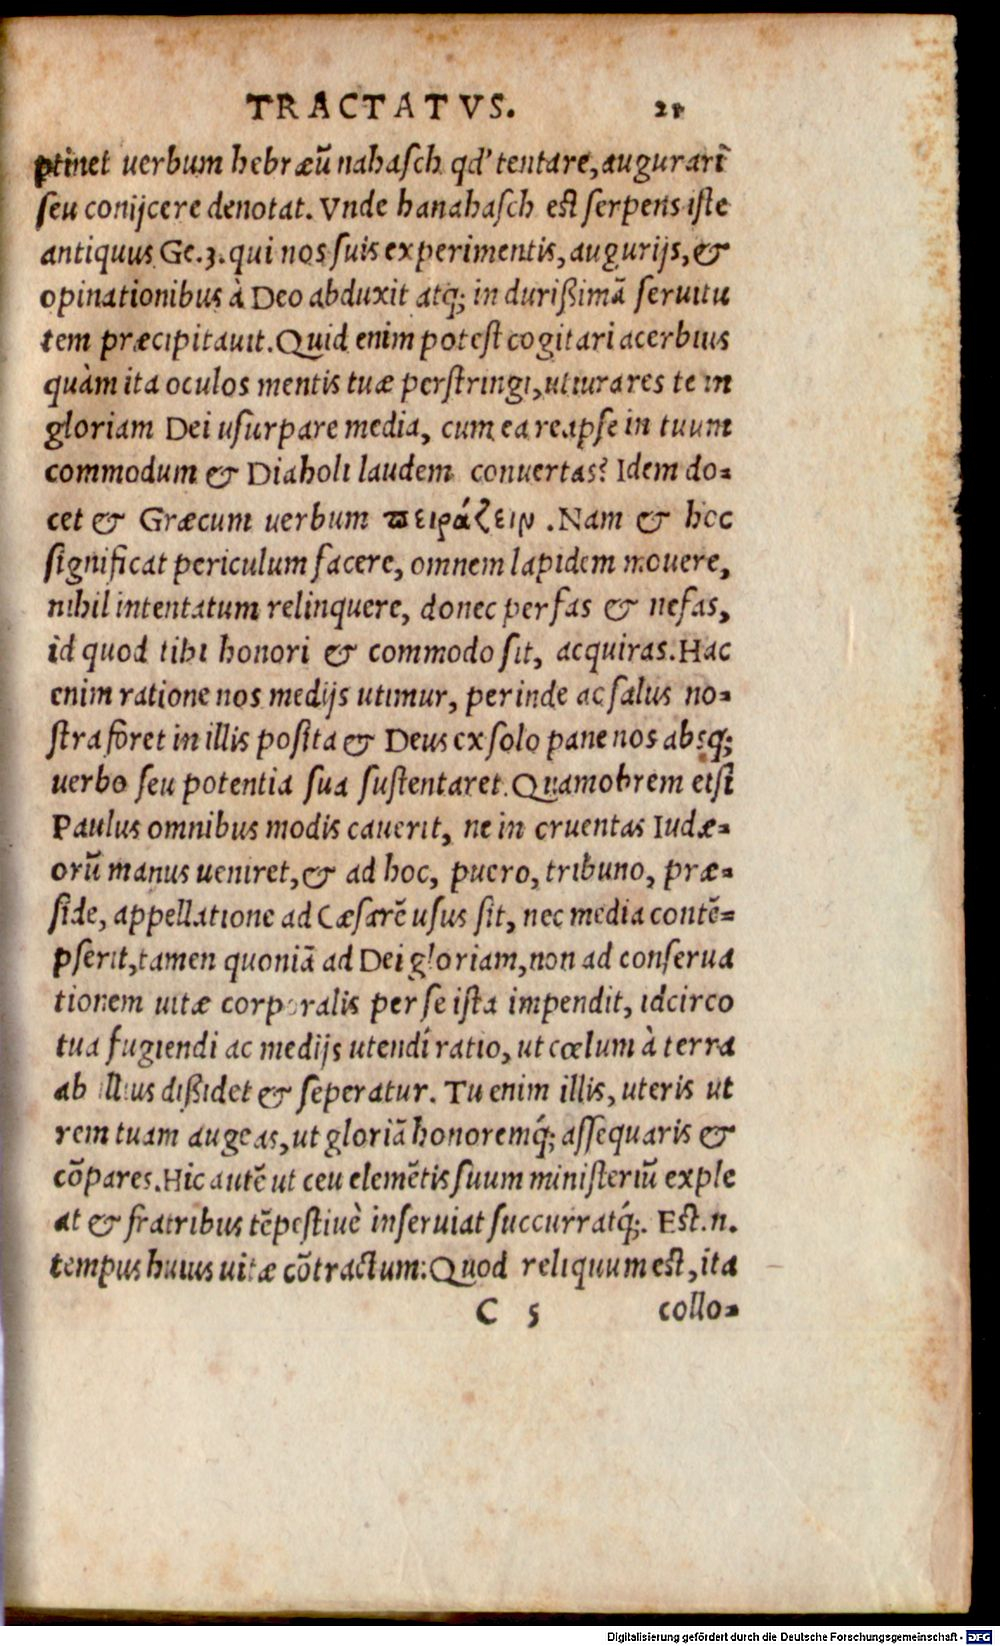 TRACTATVS. 21
ꝑtinet uerbum hebræũ nahasch qd' tentare, augurari
seu conijcere denotat. Vnde hanahasch est serpens iste
antiquus Ge.3. qui nos suis experimentis, augurijs, &
opinationibus à Deo abduxit atq; in durißimã seruitu
tem præcipitauit. Quid enim potest cogitari acerbius
quàm ita oculos mentis tuæ perstringi, ut iurares te in
gloriam Dei usurpare media, cum ea reapse in tuum
commodum & Diaboli laudem conuertas? Idem do-
cet & Græcum uerbum πειράζειν. Nam & hoc
significat periculum facere, omnem lapidem mouere,
nihil intentatum relinquere, donec per fas & nefas,
id quod tibi honori & commodo sit, acquiras. Hac
enim ratione nos medijs utimur, perinde ac salus no-
stra foret in illis posita & Deus ex solo pane nos absq;
uerbo seu potentia sua sustentaret. Quamobrem etsi
Paulus omnibus modis cauerit, ne in cruentas Iudæ-
orũ manus ueniret, & ad hoc, puero, tribuno, præ-
side, appellatione ad Cæsarẽ usus sit, nec media contẽ-
pserit, tamen quoniã ad Dei gloriam, non ad conserua
tionem uitæ corporalis per se ista impendit, idcirco
tua fugiendi ac medijs utendi ratio, ut cœlum à terra
ab illius dißidet & seperatur. Tu enim illis, uteris ut
rem tuam augeas, ut gloriã honoremq́; assequaris &
cõpares. Hic autẽ ut ceu elemẽtis suum ministeriũ exple
at & fratribus tẽpestiuè inseruiat succurratq́;. Est.n.
tempus huius uitæ cõtractum: Quod reliquum est, ita
C 5 collo-
Digitalisierung gefördert durch die Deutsche Forschungsgemeinschaft - DFG